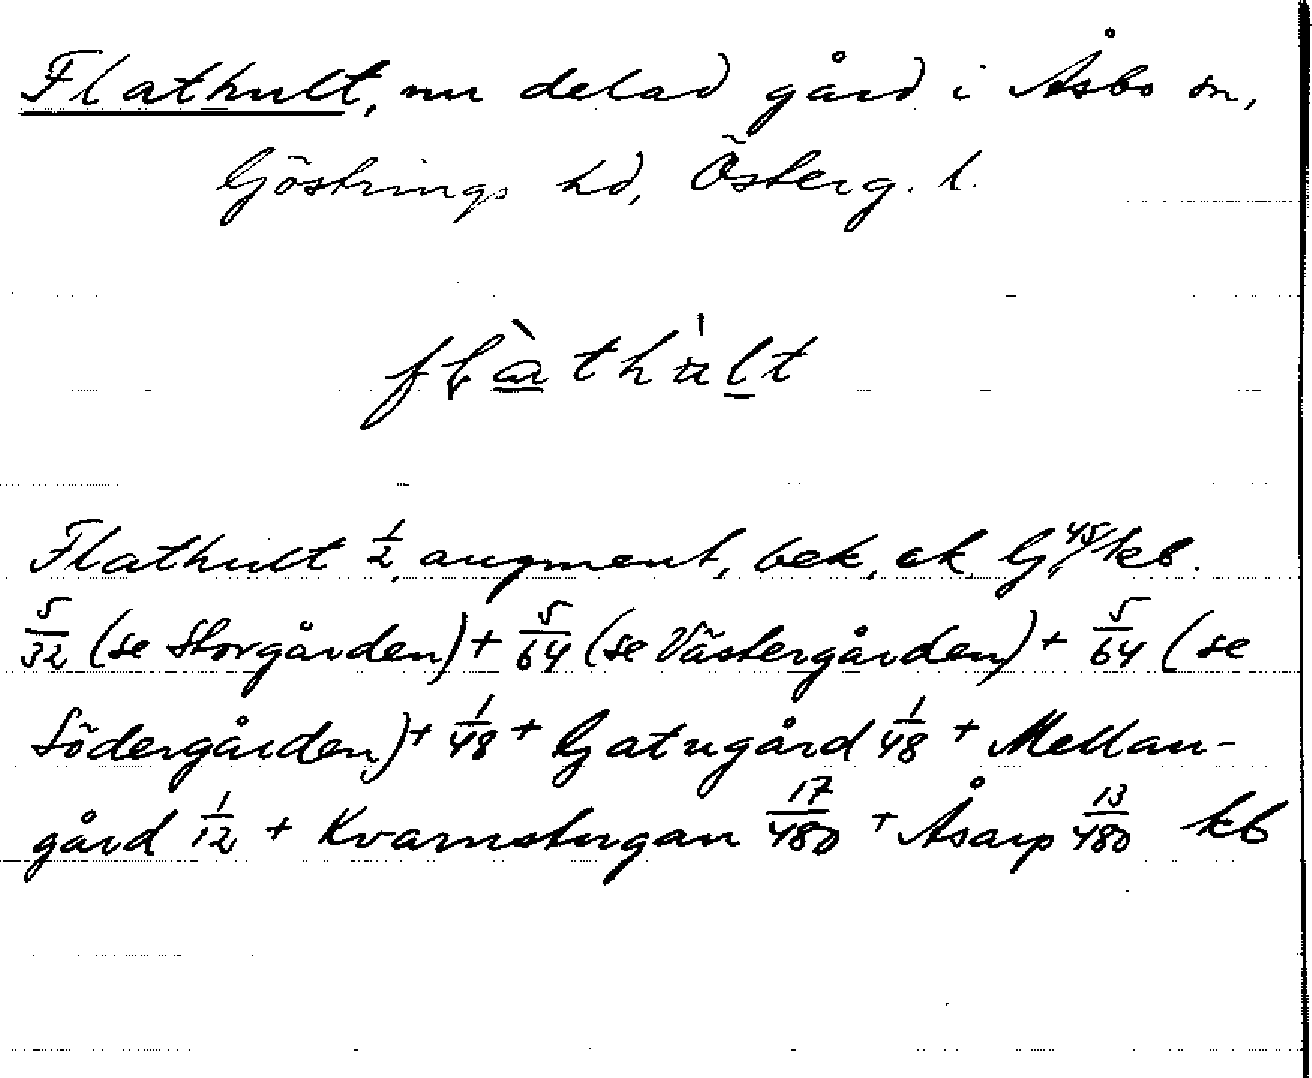 Flathult, nu delad gård i Åsbo sn,
Göstrings hd, Österg. l.
flàthu̍lt
Flathult 1/2, augment, bek, ek, G 45/kb.
5/32 (se Storgården) + 5/64 (se Västergården) + 5/64 (se
Södergården) + 1/48 + Gatugård 1/48 + Mellan-
gård 1/12 + Kvarnstugan 17/480 + Åsarp 13/480 kb